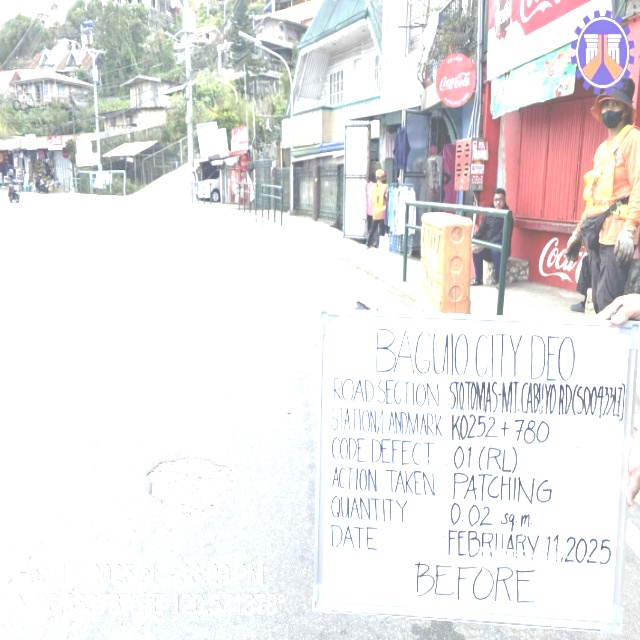 Coca-Cola
Coca-Cola
BAGUIO CITY DEO
ROAD SECTION STO TOMAS-MT. CABUYO RD (S00433LZ)
STATION/LANDMARK K0252+780
CODE DEFECT 01 (RL)
ACTION TAKEN PATCHING
QUANTITY 0.02 sq.m.
DATE FEBRUARY 11, 2025
BEFORE